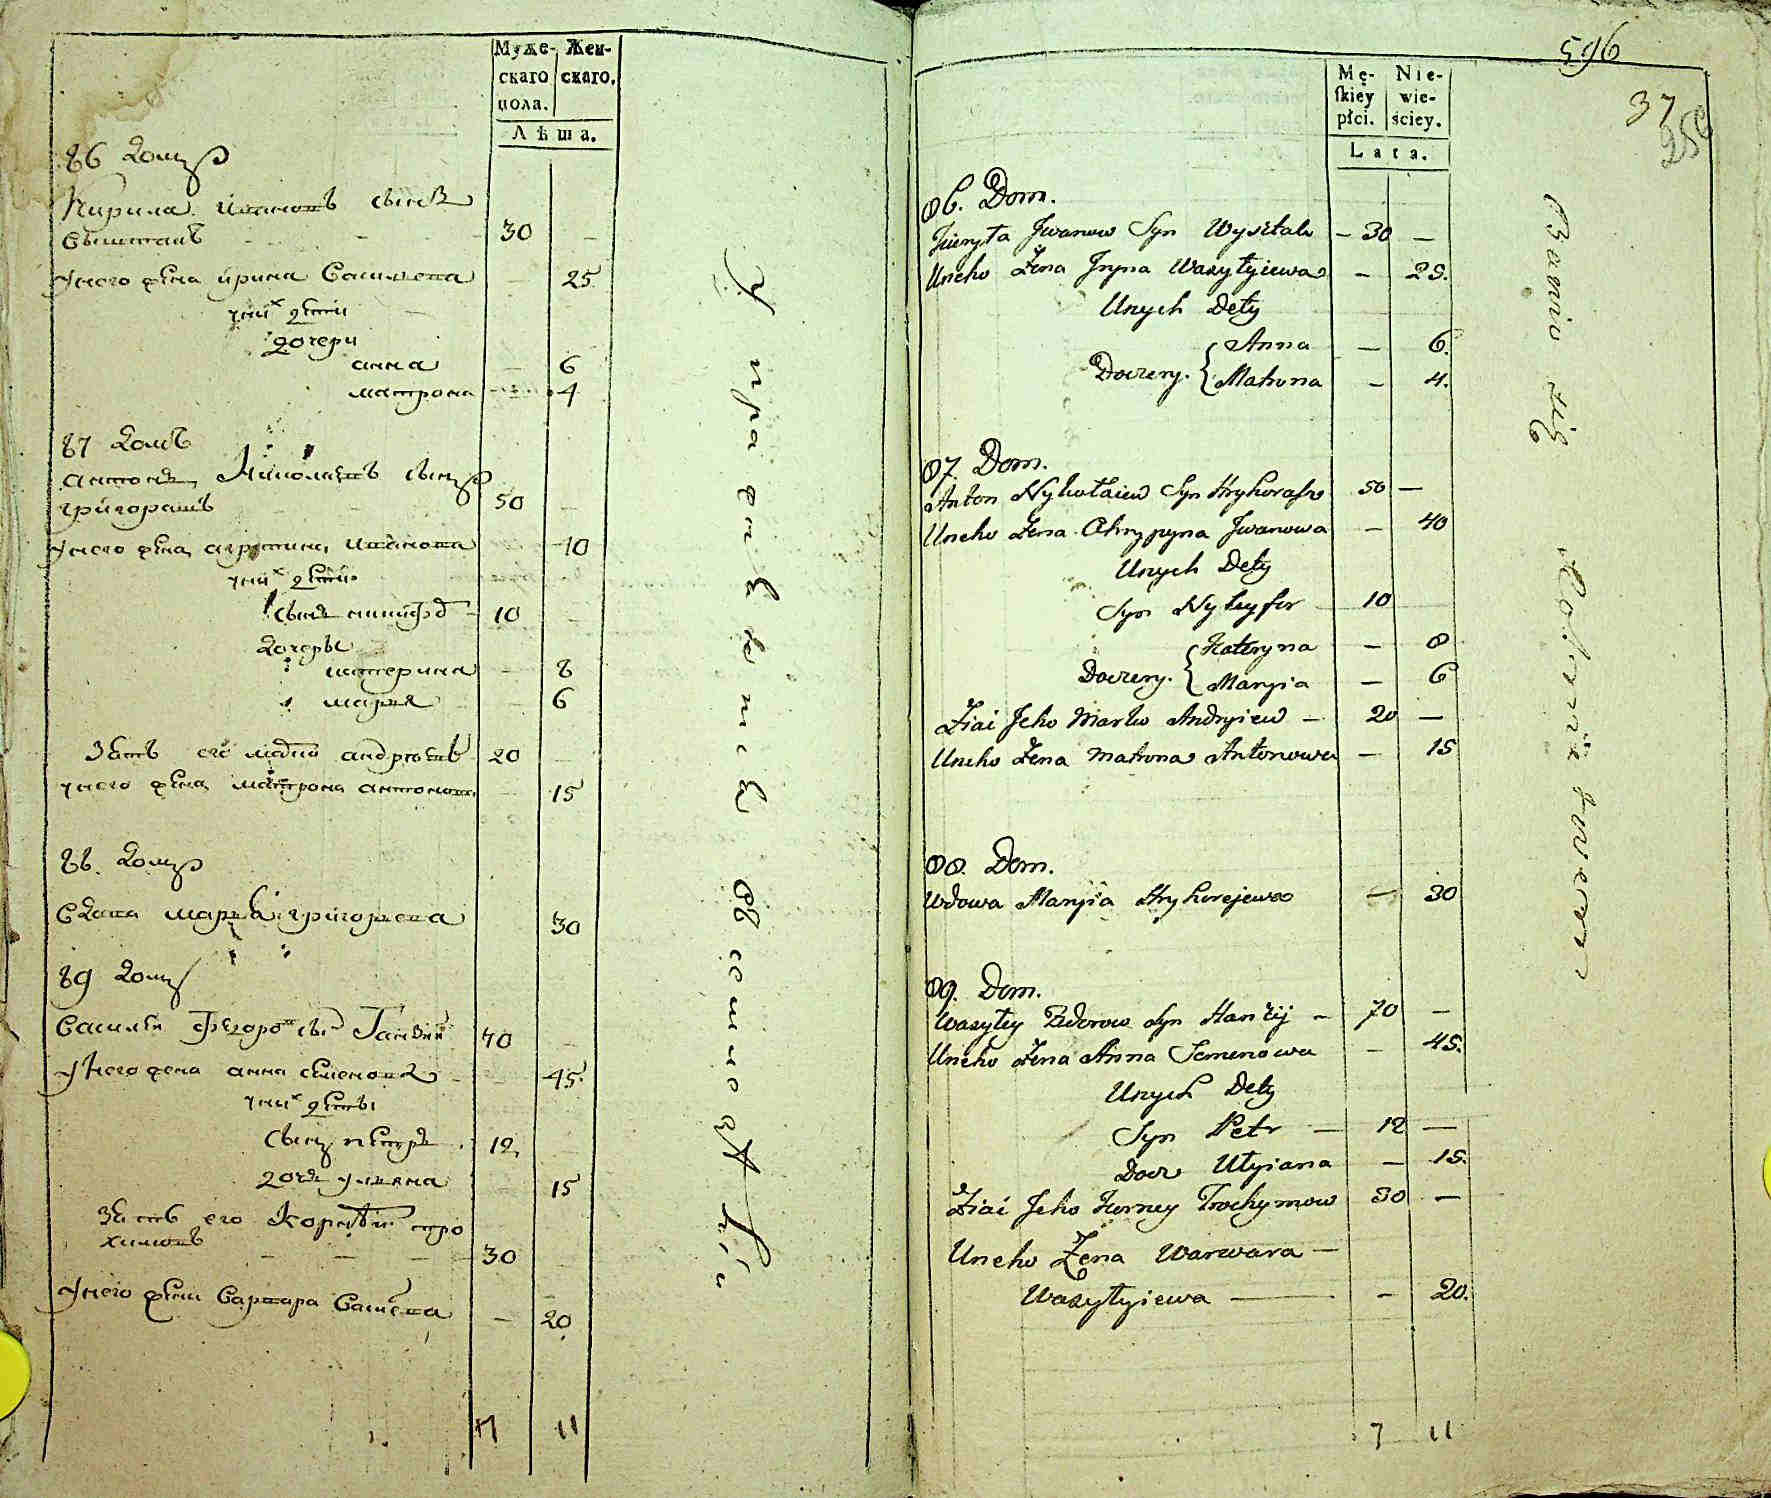 Муже- Жен-
скаго скаго.
пола.
Лѣта.
86 домъ
Кирила Ивановъ сынъ
30 -
Унего жена Ирина Василева - 25
уних дети
дочери
анна - 6
матрона - 4
87 домъ
антонъ Николаевъ сынъ
григорашъ 50 -
унего жена агрипина Иванова - 40
уних дети
сынъ никифор 10 -
дочеры
катерина - 8
марья - 6
Зять его марко андреевъ 20 -
унего жена матрона антонова - 15
88 домъ
Вдова марья григорьева 30
89 домъ
Василей Федоров сын Ганжий 70 -
Унего жена анна семенова - 45
уних дети
сынъ петръ 12
дочь ульяна 15
Зять его Корней тро
химовъ - - - 30
Унего жена Варвара Василева - 20
7 11
596
37
Mę- Nie-
skiey wie-
płci. ściey.
Lata.
86. Dom.
Kiryła Jwanow Syn Wysztak - 30 -
Uneho Żena Jryna Wasyłyiewa - 25.
Unych Dety
Doczery. { Anna - 6.
Matrona - 4.
87. Dom.
Anton Nykołaiew Syn Hryhorasz 50 -
Uneho Żena Ahrypyna Jwanowa - 40
Unych Dety
Syn Nykyfor - 10
Doczery. { Kateryna - 8
Maryia - 6
Ziat Jeho Marko Andryiew - 20 -
Uneho Żena Matrona Antonowa - 15
88. Dom.
Wdowa Maryia Hryhorejewa - 30
89. Dom.
Wasyłey Fedorow Syn Hanżij - 70 -
Uneho Żena Anna Semenowa - 45.
Unych Dety
Syn Petr - 12 -
Docz Ulyiana - 15.
Ziat Jeho Korney Trochymow 30 -
Uneho Żena Warwara -
Wasyłyiewa - - 20.
7 11